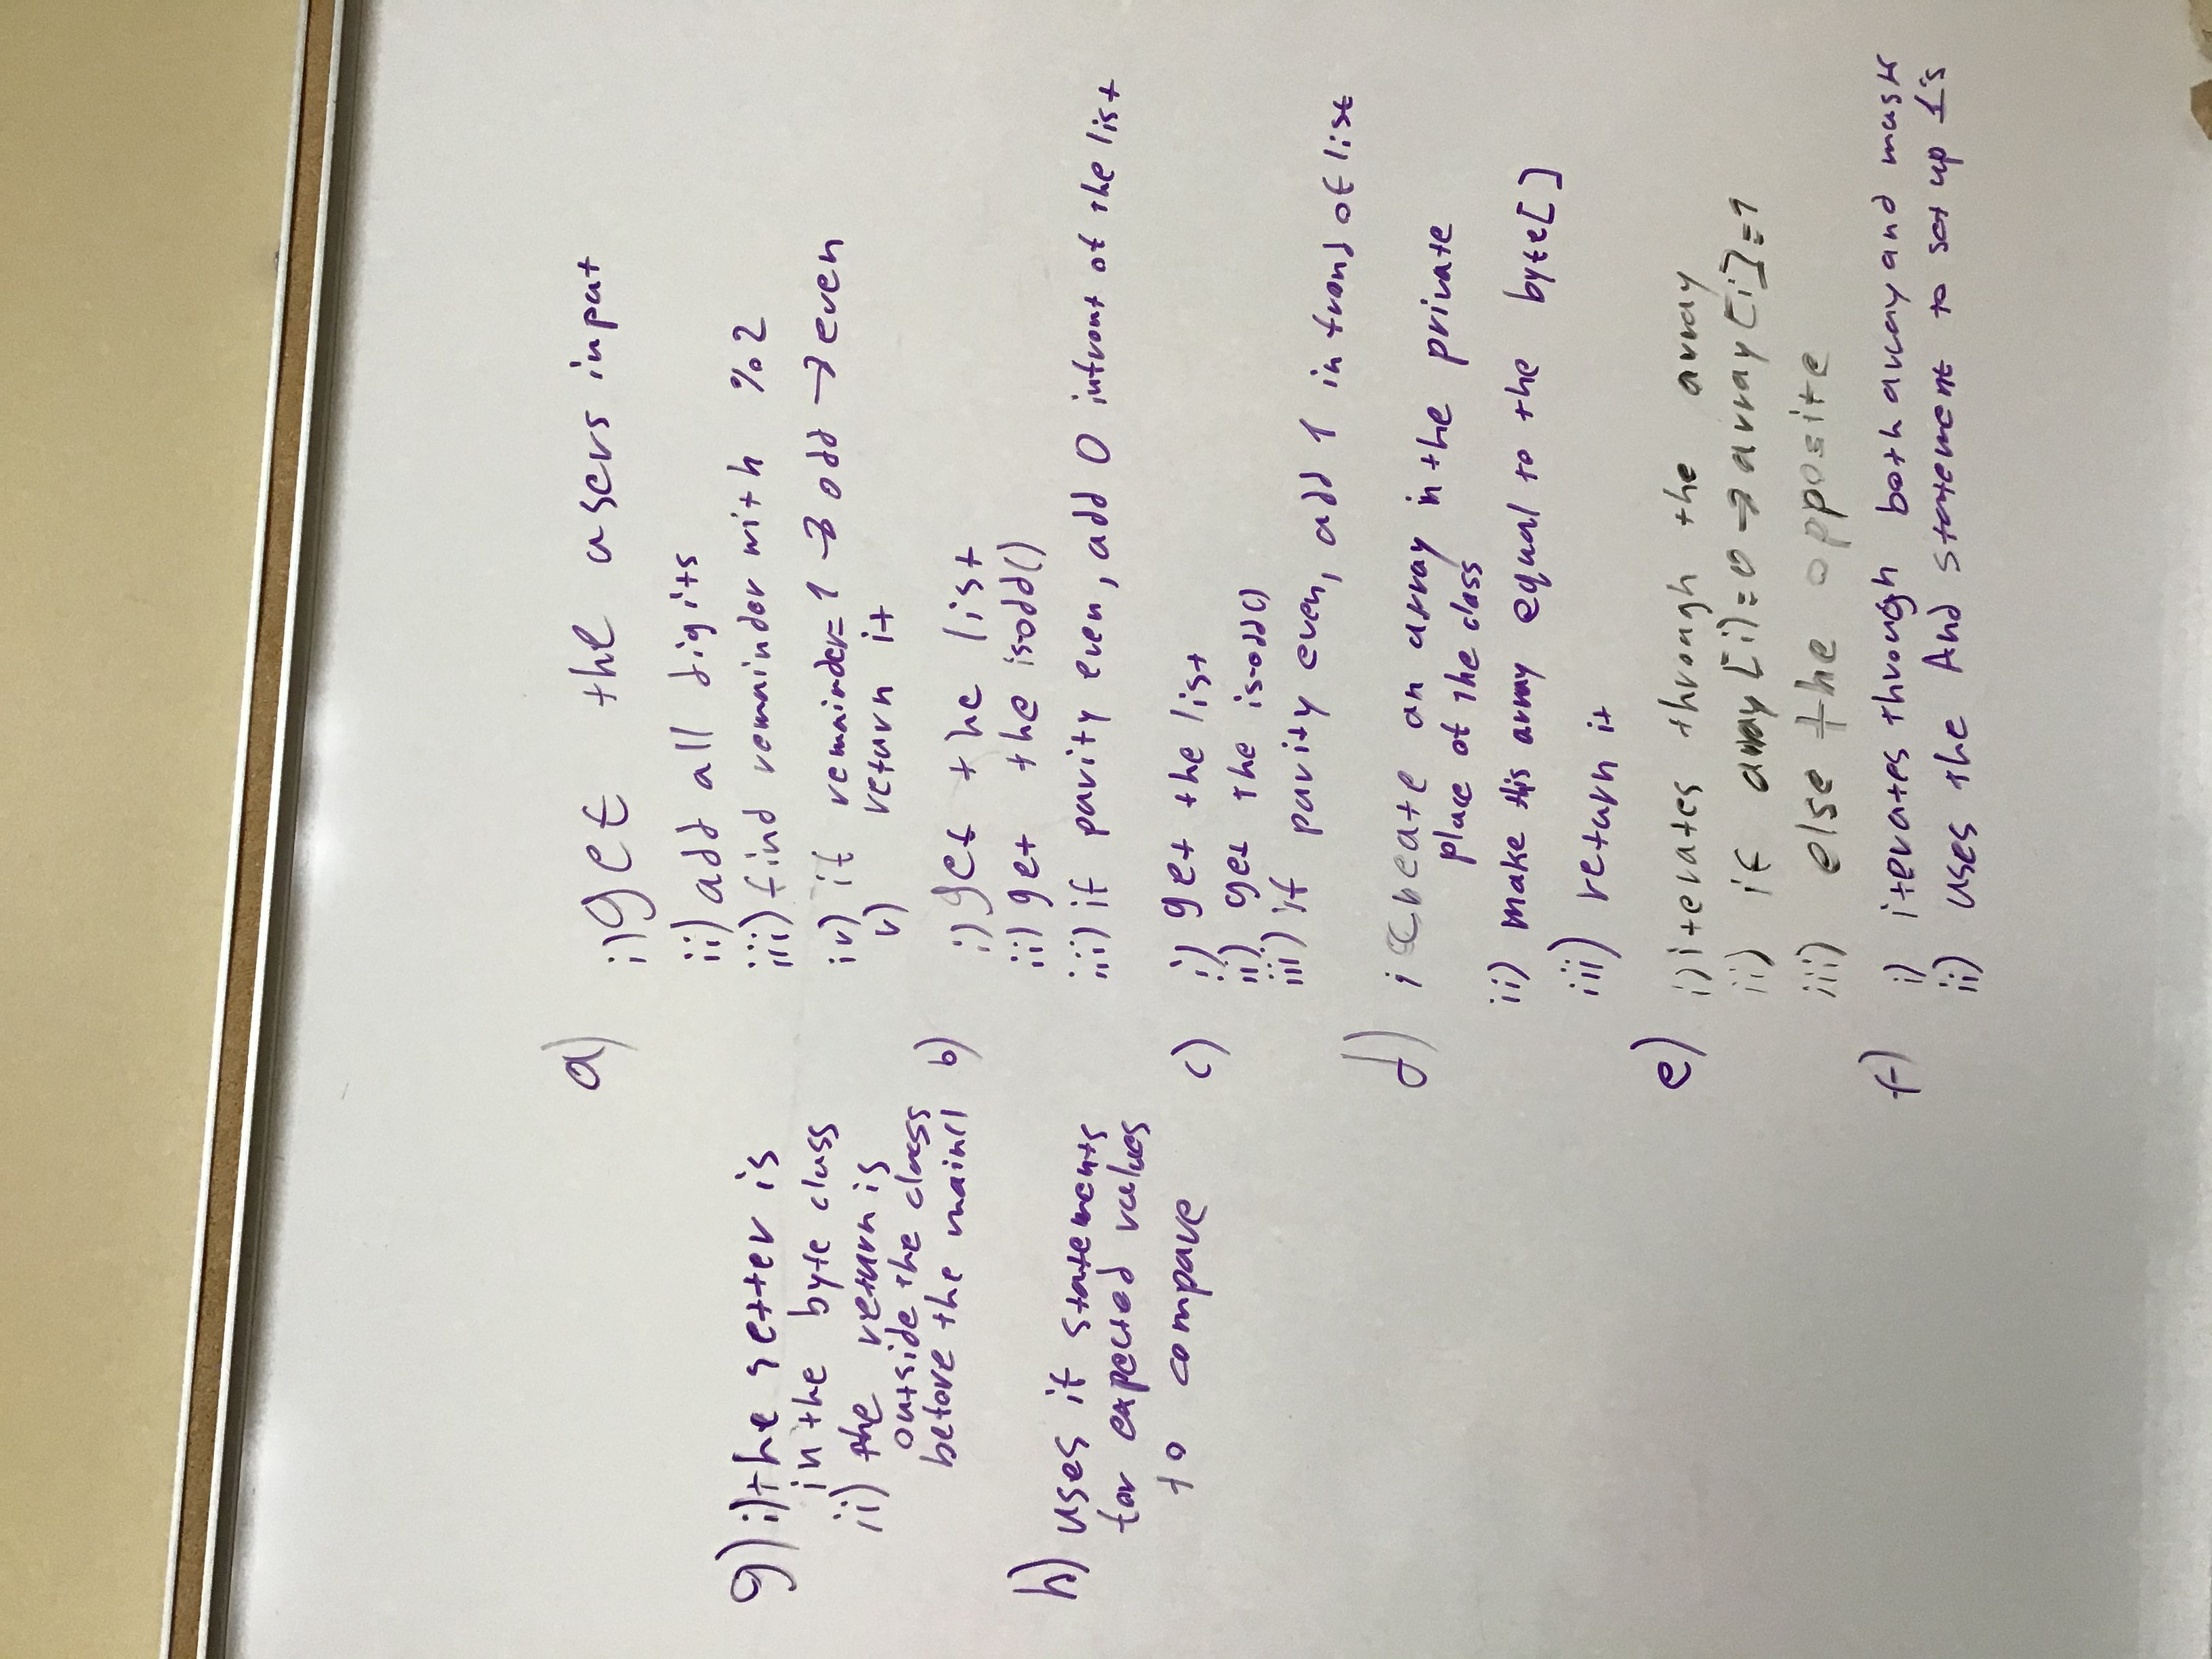 a) i) get the users input
ii) add all digits
iii) find remainder with %2
iv) if remainder=1 → odd → even
v) return it
b) i) get the list
ii) get the isodd()
iii) if parity even, add 0 infront of the list
c) i) get the list
ii) get the is-odd()
iii) if parity even, add 1 in frond of list
d) i create an array in the private
place of the class
ii) make this array equal to the byte[]
iii) return it
e) i) iterates through the array
ii) if array[i)=0 → array[i]=1
iii) else the opposite
f) i) iterates through both array and mask
ii) uses the And statement to set up 1's
g) i) the setter is
in the byte class
ii) the return is
outside the class
before the main()
h) uses if statements
for expected values
to compare